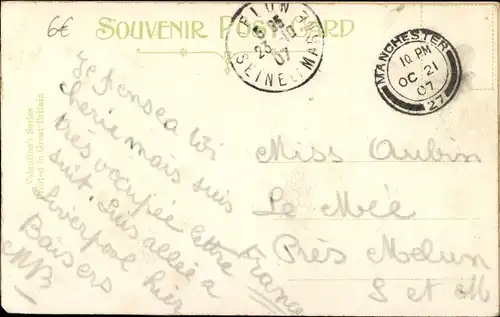 6€
SOUVENIR POSTCARD
MELUN
23-10
07
SEINE ET MARNE
MANCHESTER
10 PM
OC 21
07
27
Valentine's Series
Printed in Great Britain
Je pense à toi
cherie mais suis
très occupée lettre
suit suis allée à
Liverpool hier
Baisers
MB
Miss Aubin
Le Mée
Près Melun
S et M
France